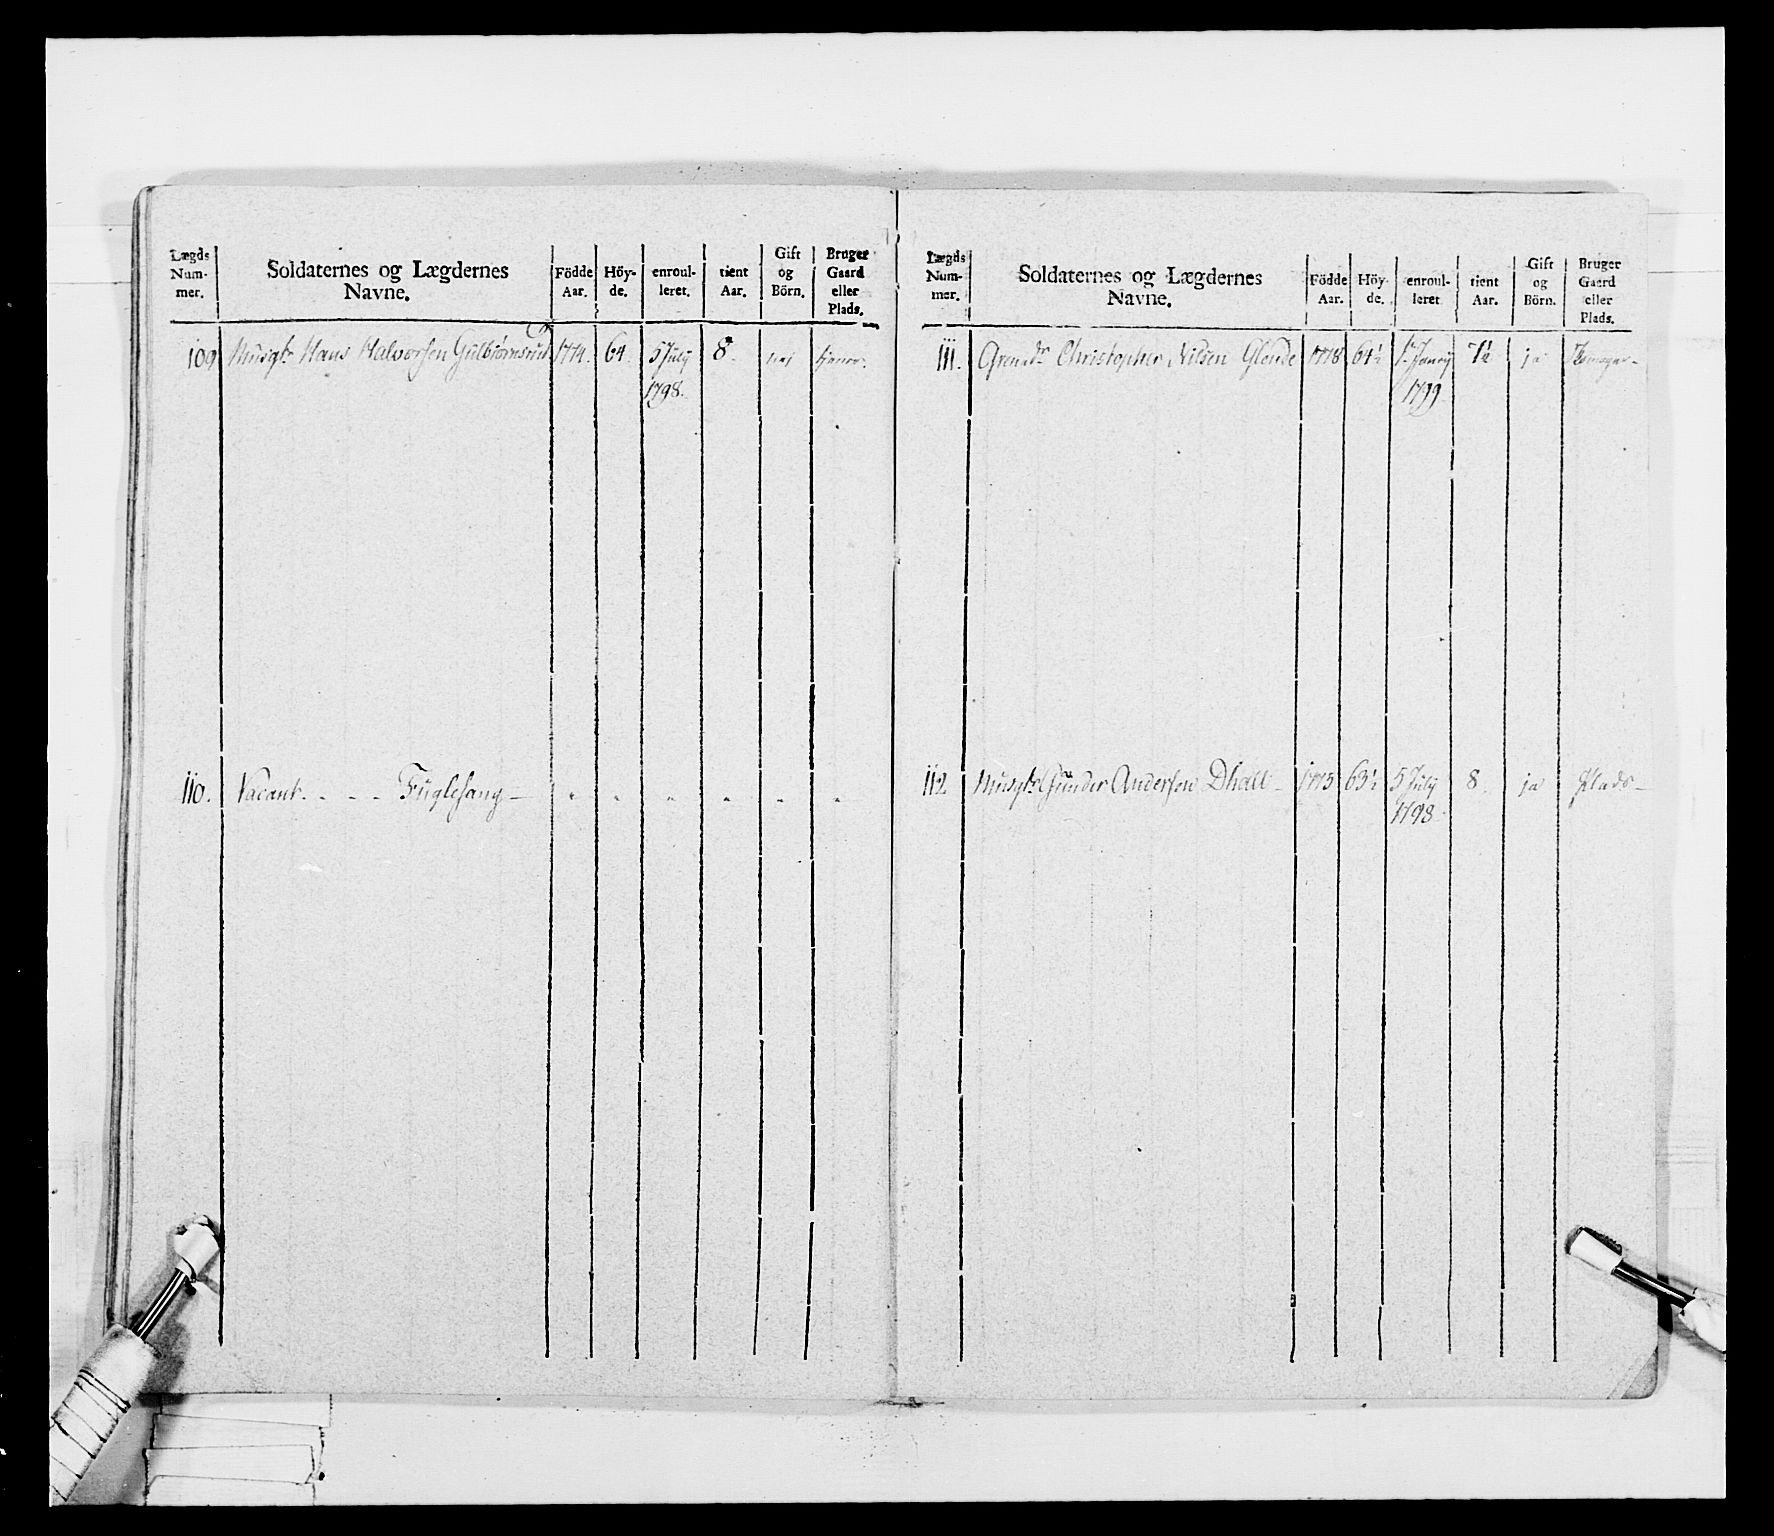 Lægds Num- mer. Soldaternes og Lægdernes Navne. Födde Aar. Höy- de. enroul- leret. tient Aar. Gift og Börn. Bruger Gaard eller Plads.
109 Musqtr Hans Halvorsen Gulbiørnsrud 1774. 64. 5 July 8. nej tjener.
1798.
110. Vacant. . - - Fuglesang - " " " " " "
Lægds Num- mer. Soldaternes og Lægdernes Navne. Födde Aar. Höy- de. enroul- leret tient Aar. Gift og Börn. Bruger Gaard eller Plads.
111. Grenadr Christopher Nilsen Glende 1778 64½ 1ste Janry 7½ ja
1799
112 Musqtr Gunder Andersen Dhall - 1775 63½ 5 July 8. ja Plads -
1798.